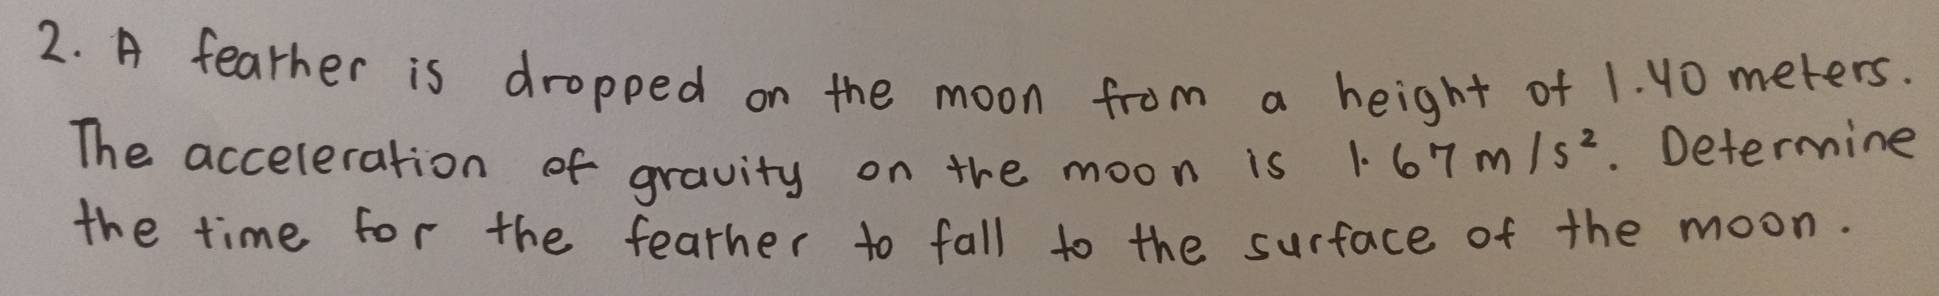 2. A feather is dropped on the moon from a height of 1.40 meters.
The acceleration of gravity on the moon is 1.67 m/s². Determine
the time for the feather to fall to the surface of the moon.